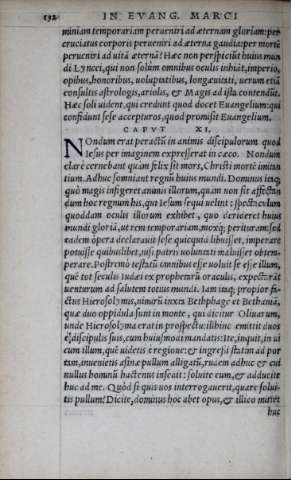 132 IN EVANG. MARCI
miniam temporariam perueniri ad æternam gloriam: per
cruciatus corporis perueniri ad æterna gaudia: per mortē
perueniri ad uitā æternā? Hæc non perspiciūt huius mun
di Lyncei, qui non solùm omnibus oculis inhiāt, imperio,
opibus, honoribus, uoluptatibus, longæuitati, uerum etiā
consultis astrologis, ariolis, & Magis ad ista contendūt.
Hæc soli uident, qui credunt quod docet Euangelium: qui
confidunt sese accepturos, quod promisit Euangelium.
CAPVT XI.
NOndum erat peractū in animis discipulorum quod
Iesus per imaginem expresserat in cæco. Nondum
clarè cernebant quàm felix sit mors, Christi mortē imitan
tium. Adhuc somniant regnū huius mundi. Dominus itaq;
quò magis infigeret animis illorum, quàm non sit affectan
dum hoc regnum his, qui Iesum sequi uelint: spectaculum
quoddam oculis illorum exhibet, quo derideret huius
mundi gloriā, ut rem temporariam, moxq; perituram: sed
eadem opera declarauit sese quicquid libuisset, imperare
potuisse quibuslibet, nisi patris uoluntati maluisset obtem-
perare. Postremò testatū omnibus esse uoluit se esse illum,
què tot seculis Iudæi ex prophetarū oraculis, expectarāt
uenturum ad salutem totius mundi. Iam itaq; propior fa-
ctus Hierosolymis, nimirū iuxta Bethphage et Bethaniā,
quæ duo oppidula sunt in monte, qui dicitur Oliuarum,
unde Hierosolyma erat in prospectu: illhinc emittit duos
è discipulis suis, cum huiusmodi mandatis: Ite, inquit, in ui
cum illum, quē uidetis è regione: & ingressi statim ad por
tam, inuenietis asinæ pullum alligatū, rudem adhuc & cui
nullus hominū hactenus insedit: soluite eum, & adducite
huc ad me. Quòd si quis uos interrogauerit, quare solui-
tis pullum? Dicite, dominus hoc habet opus, & illico mittet
huc